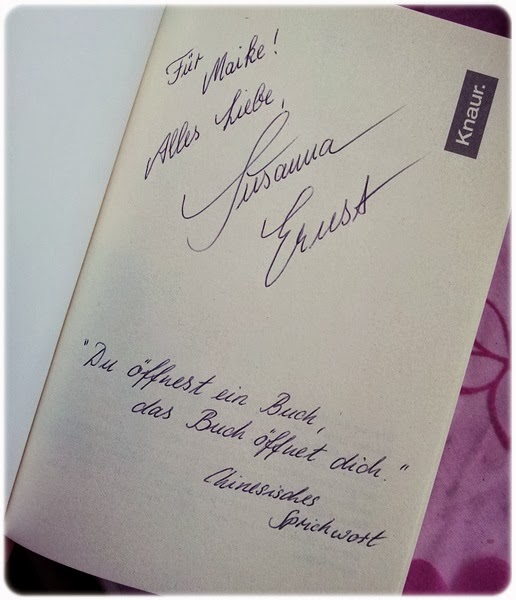 Für Maike!
Alles Liebe,
Susanna
Ernst
Knaur.
"Du öffnest ein Buch,
das Buch öffnet dich."
Chinesisches
Sprichwort